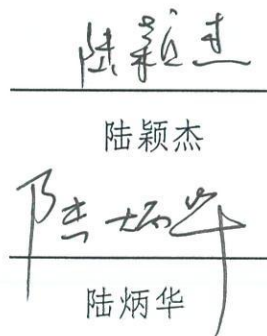 陆颖杰
陆颖杰
陆炳华
陆炳华